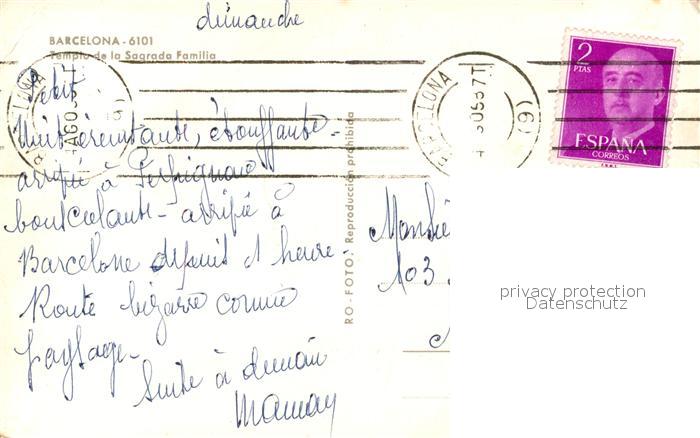 dimanche
BARCELONA - 6101
Templo de la Sagrada Familia
Petit
Nuit éreintante, étouffante -
arrivée à Perpignan
bouscolante - arrivée à
Barcelone depuis 1 heure
Route bizarre comme
paysage -
Suite à demain
Maman
RO - FOTO. Reproducción prohibida
BARCELONA
AGO
(9)
BARCELONA
(6)
2
PTAS
ESPAÑA
CORREOS
103
privacy protection
Datenschutz